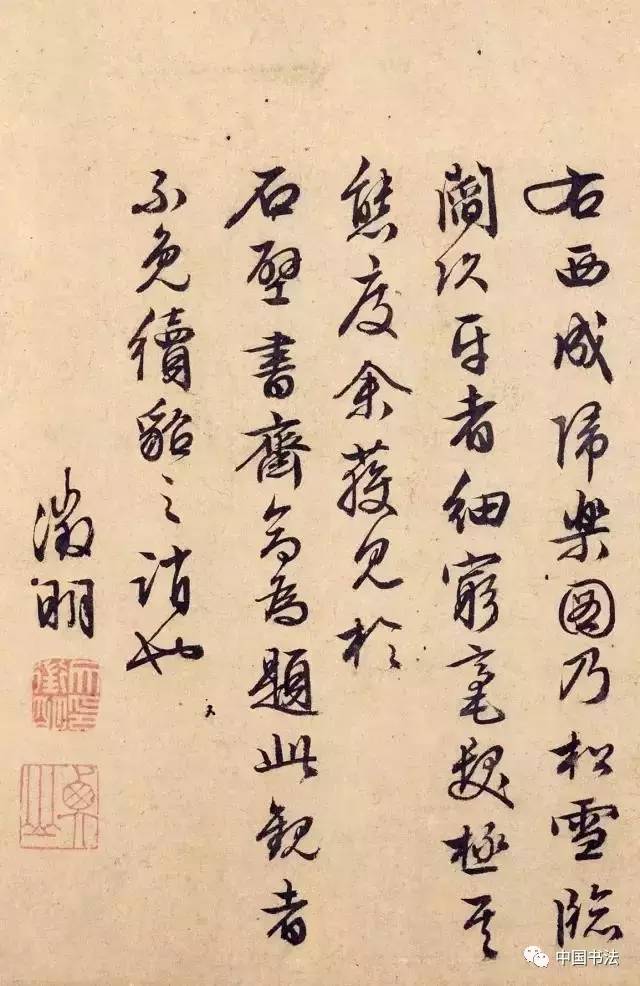 右西成歸樂圖乃松雪臨
閻次平者細窮毫髮極其
態度余獲見於
石壁書齋命為題此觀者
不免續貂之誚也
徵明
中国书法